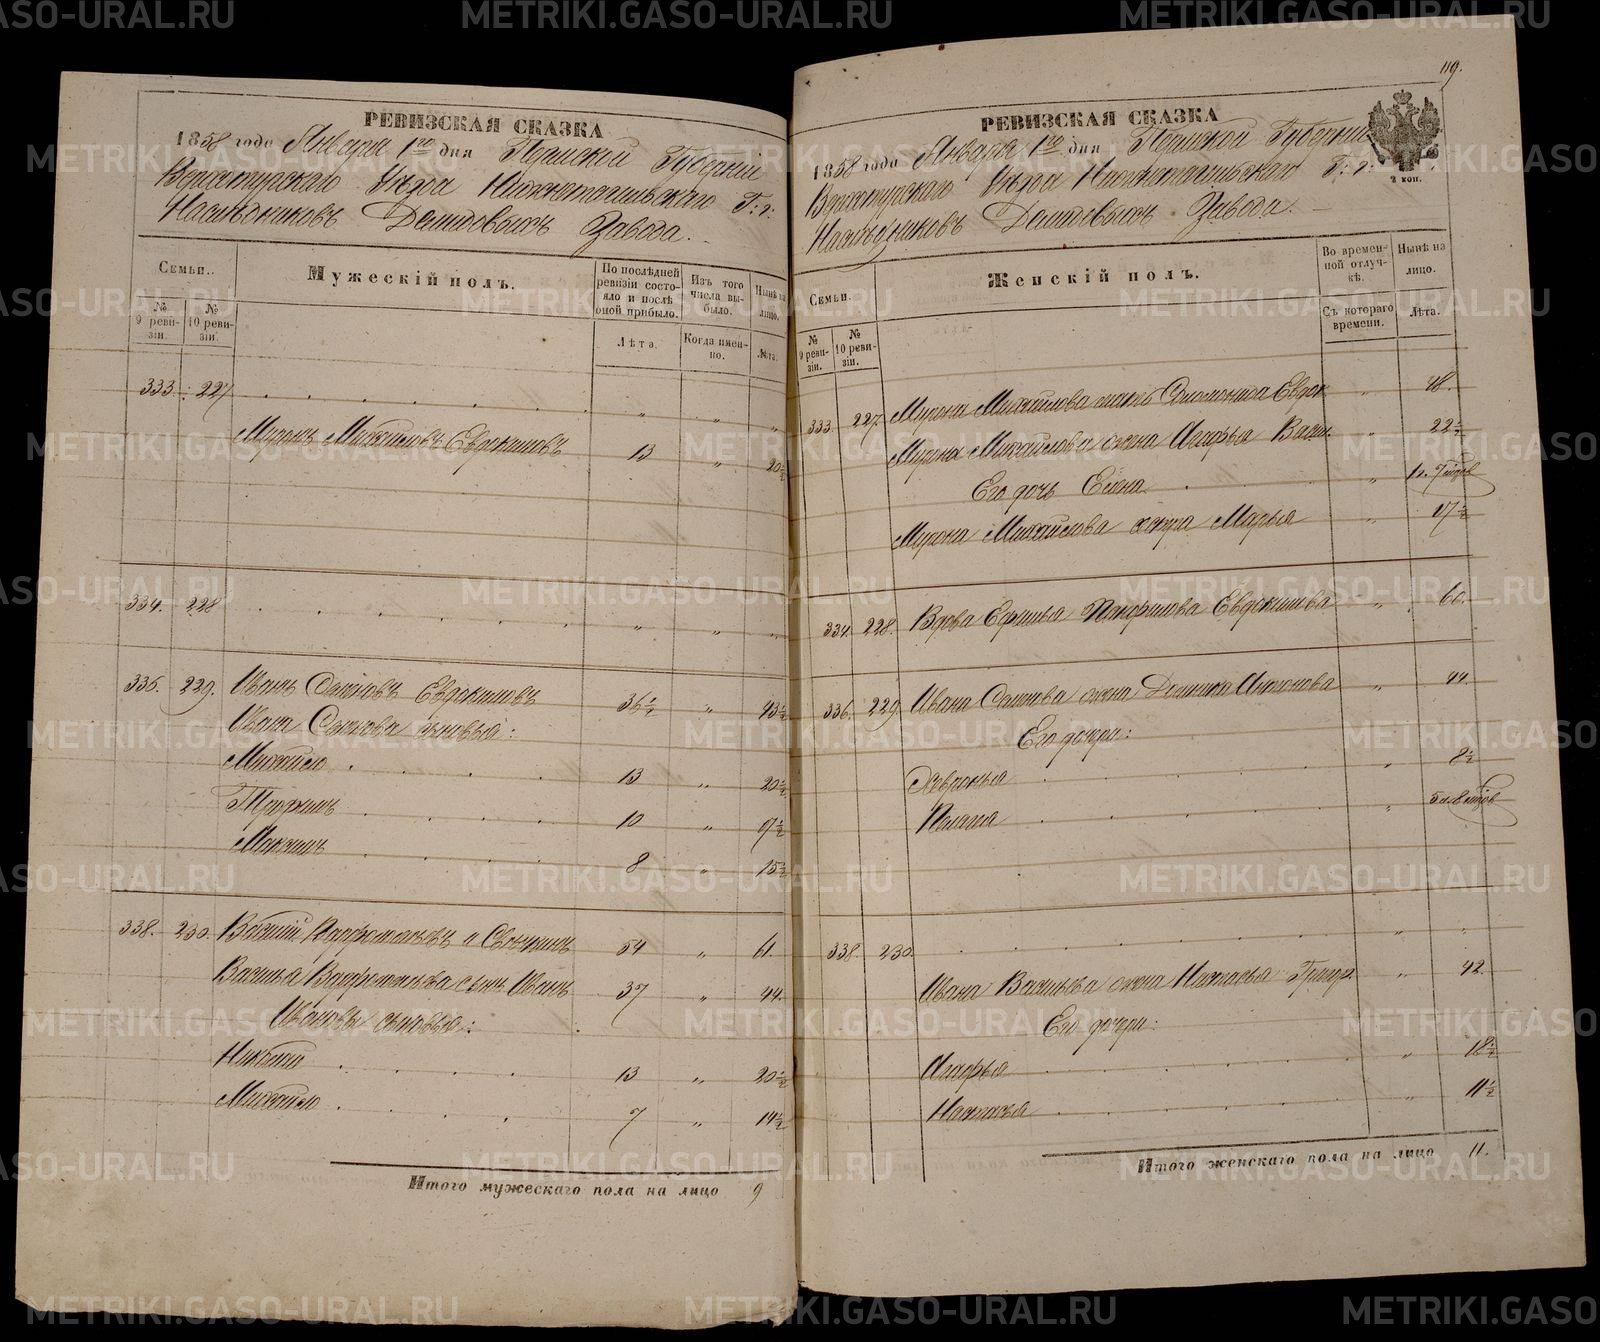 РЕВИЗСКАЯ СКАЗКА
1858 года Января 1го дня Пермской Губерніи
Верхотурскаго Уѣзда Нижнетагильскаго Г: г:
Наслѣдниковъ Демидовыхъ Завода.
Семьи.
Мужескій полъ.
По послѣдней ревизіи состояло и послѣ оной прибыло.
Изъ того числа выбыло.
Нынѣ на лицо.
№ 9 ревизіи.
№ 10 ревизіи.
Лѣта.
Когда именно.
Лѣта.
333. 227 „ „ „
Миронъ Михайловъ Евдокимовъ 13 „ 20½
334. 228 „ „ „
336. 229. Иванъ Евдокимовъ 36½ „ 43½
Ивана сыновья:
Михайло 13 „ 20½
Трофимъ 10 „ 17½
Максимъ 8 „ 15½
338. 230. Василій 54 „ 61.
Василья сынъ Иванъ 37 „ 44.
Ивановы сыновья:
Николай 13 „ 20½
Михайло 7 „ 14½
Итого мужескаго пола на лицо 9
119.
РЕВИЗСКАЯ СКАЗКА
1858 года Января 1го дня Пермской Губерніи
2 коп.
Верхотурскаго Уѣзда Нижнетагильскаго Г: г:
Наслѣдниковъ Демидовыхъ Завода.
Семьи.
Женскій полъ.
Во временной отлучкѣ.
Нынѣ на лицо.
№ 9 ревизіи.
№ 10 ревизіи.
Съ котораго времени.
Лѣта.
333. 227. Мирона Михайлова мать Соломонида Евдок. „ 48.
Мирона Михайлова жена Агафья Васил. „ 22½
Его дочь Елена „ 1 г. 7 мѣсяц
Мирона Михайлова сестра Марья „ 17½
334. 228. Вдова Ефимья Евдокимова „ 60.
336. 229. Ивана жена Домника „ 44.
Его дочери:
Хевронья „ 8½
Палагея „ 5 л. 8 мѣсяц
338. 230. „ „
Ивана Васильева жена Настасья Григор. „ 42.
Его дочери:
Агафья „ 18½
Настасья „ 11½
Итого женскаго пола на лицо 11.
METRIKI.GASO-URAL.RU